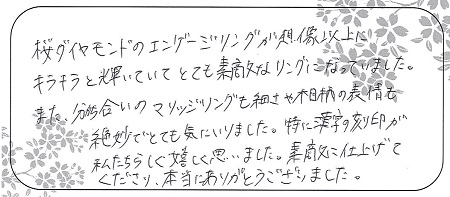 桜ダイヤモンドのエンゲージリングが想像以上に
キラキラと輝いていてとても素敵なリングになっていました。
また、分ち合いのマリッジリングも細さや木目柄の表情も
絶妙でとても気にいりました。特に漢字の刻印が
私たちらしく嬉しく思いました。素敵に仕上げて
くださり、本当にありがとうございました。